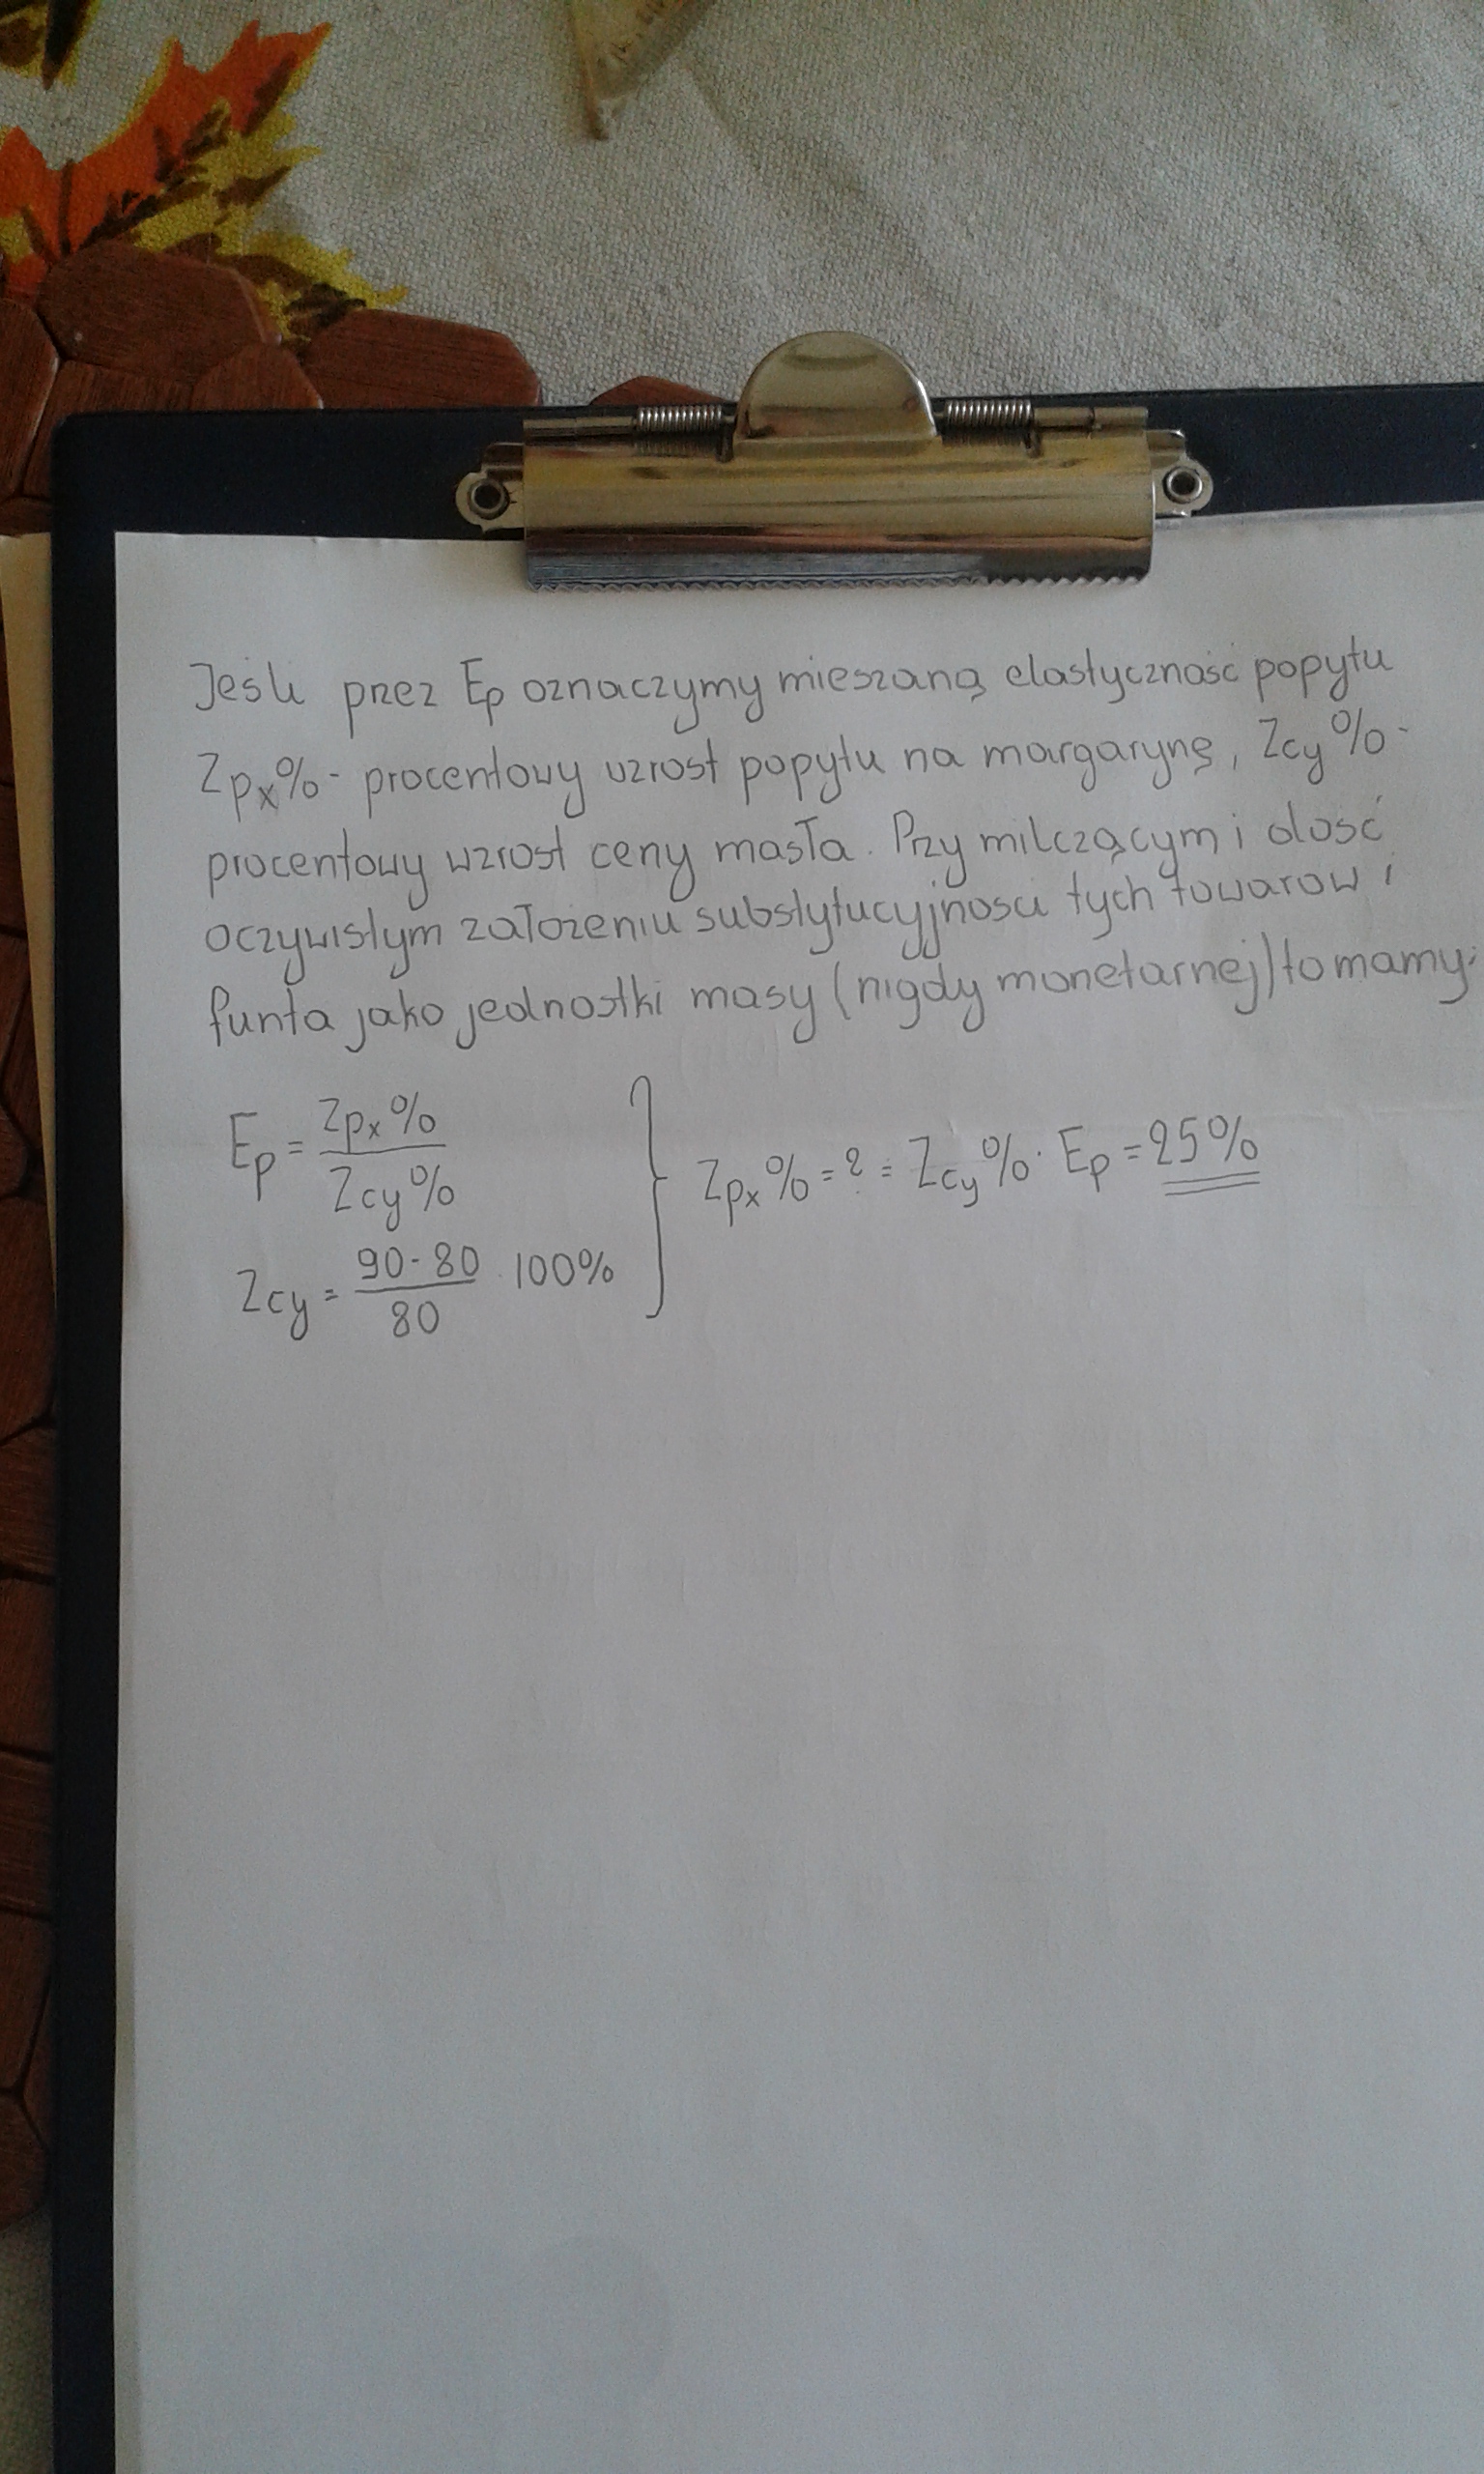 Jeśli przez Ep oznaczymy mieszaną elastyczność popytu
Zpx% - procentowy wzrost popytu na margarynę, Zcy% -
procentowy wzrost ceny masła. Przy milczącym i dość
oczywistym założeniu substytucyjności tych towarów i
funta jako jednostki masy (nigdy monetarnej) to mamy:
Ep = Zpx% / Zcy%
Zpx% = ? = Zcy% · Ep = 25%
Zcy = 90-80 / 80 · 100%